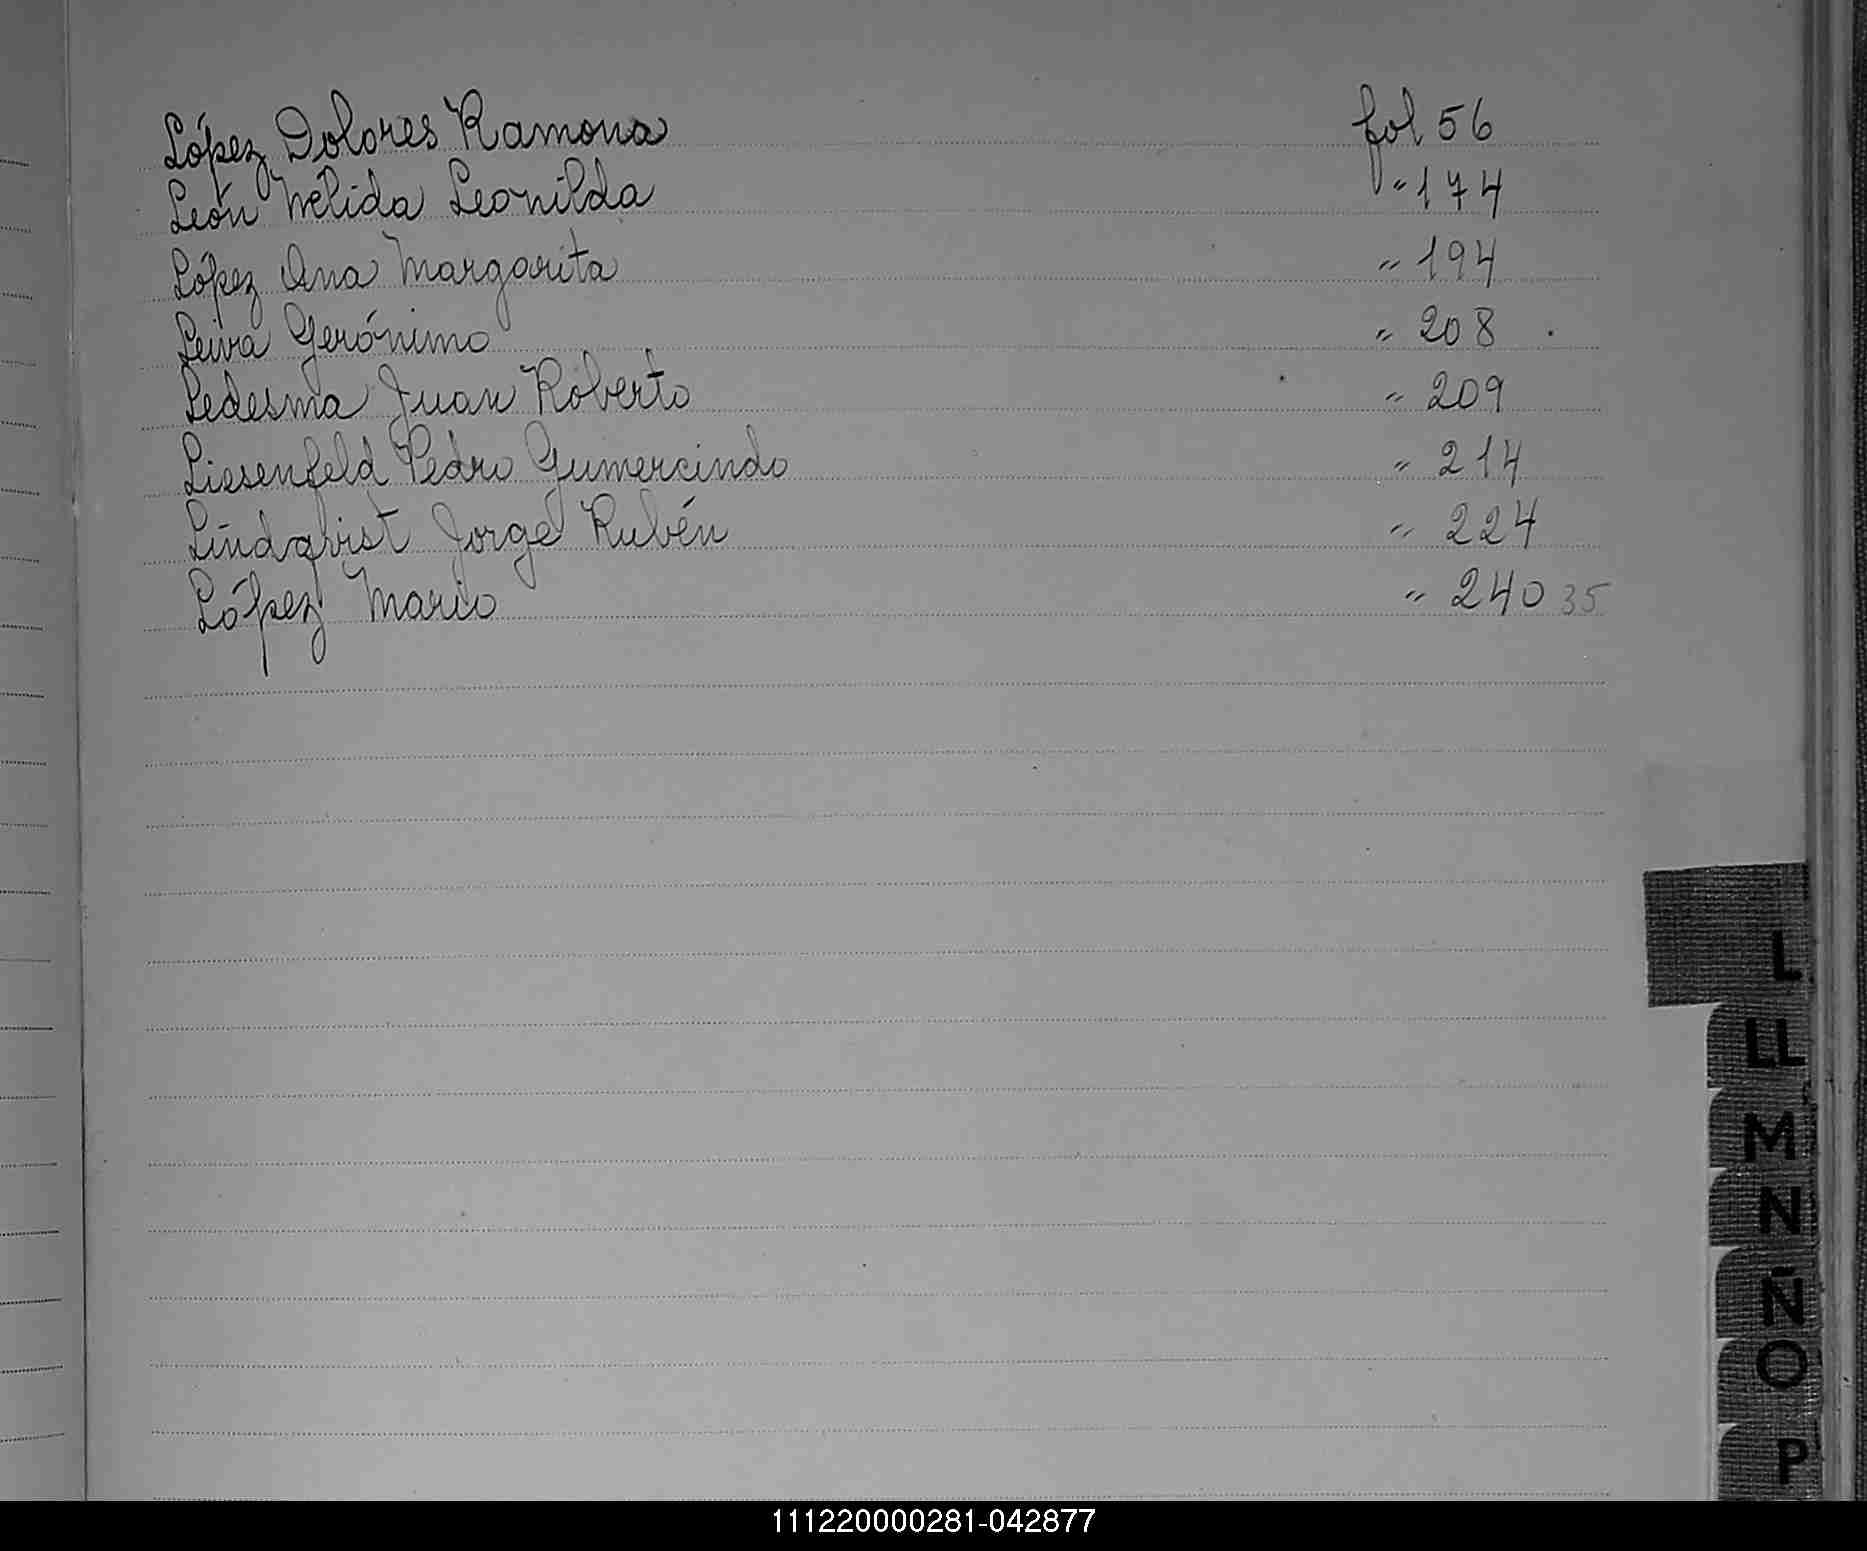 López Dolores Ramona fol 56
León Nélida Leonilda " 174
López Ana Margarita " 194
Leiva Gerónimo " 208
Ledesma Juan Roberto " 209
Liesenfeld Pedro Gumercindo " 214
Lindqvist Jorge Rubén " 224
López Mario " 240 35
L
LL
M
N
Ñ
O
P
111220000281-042877